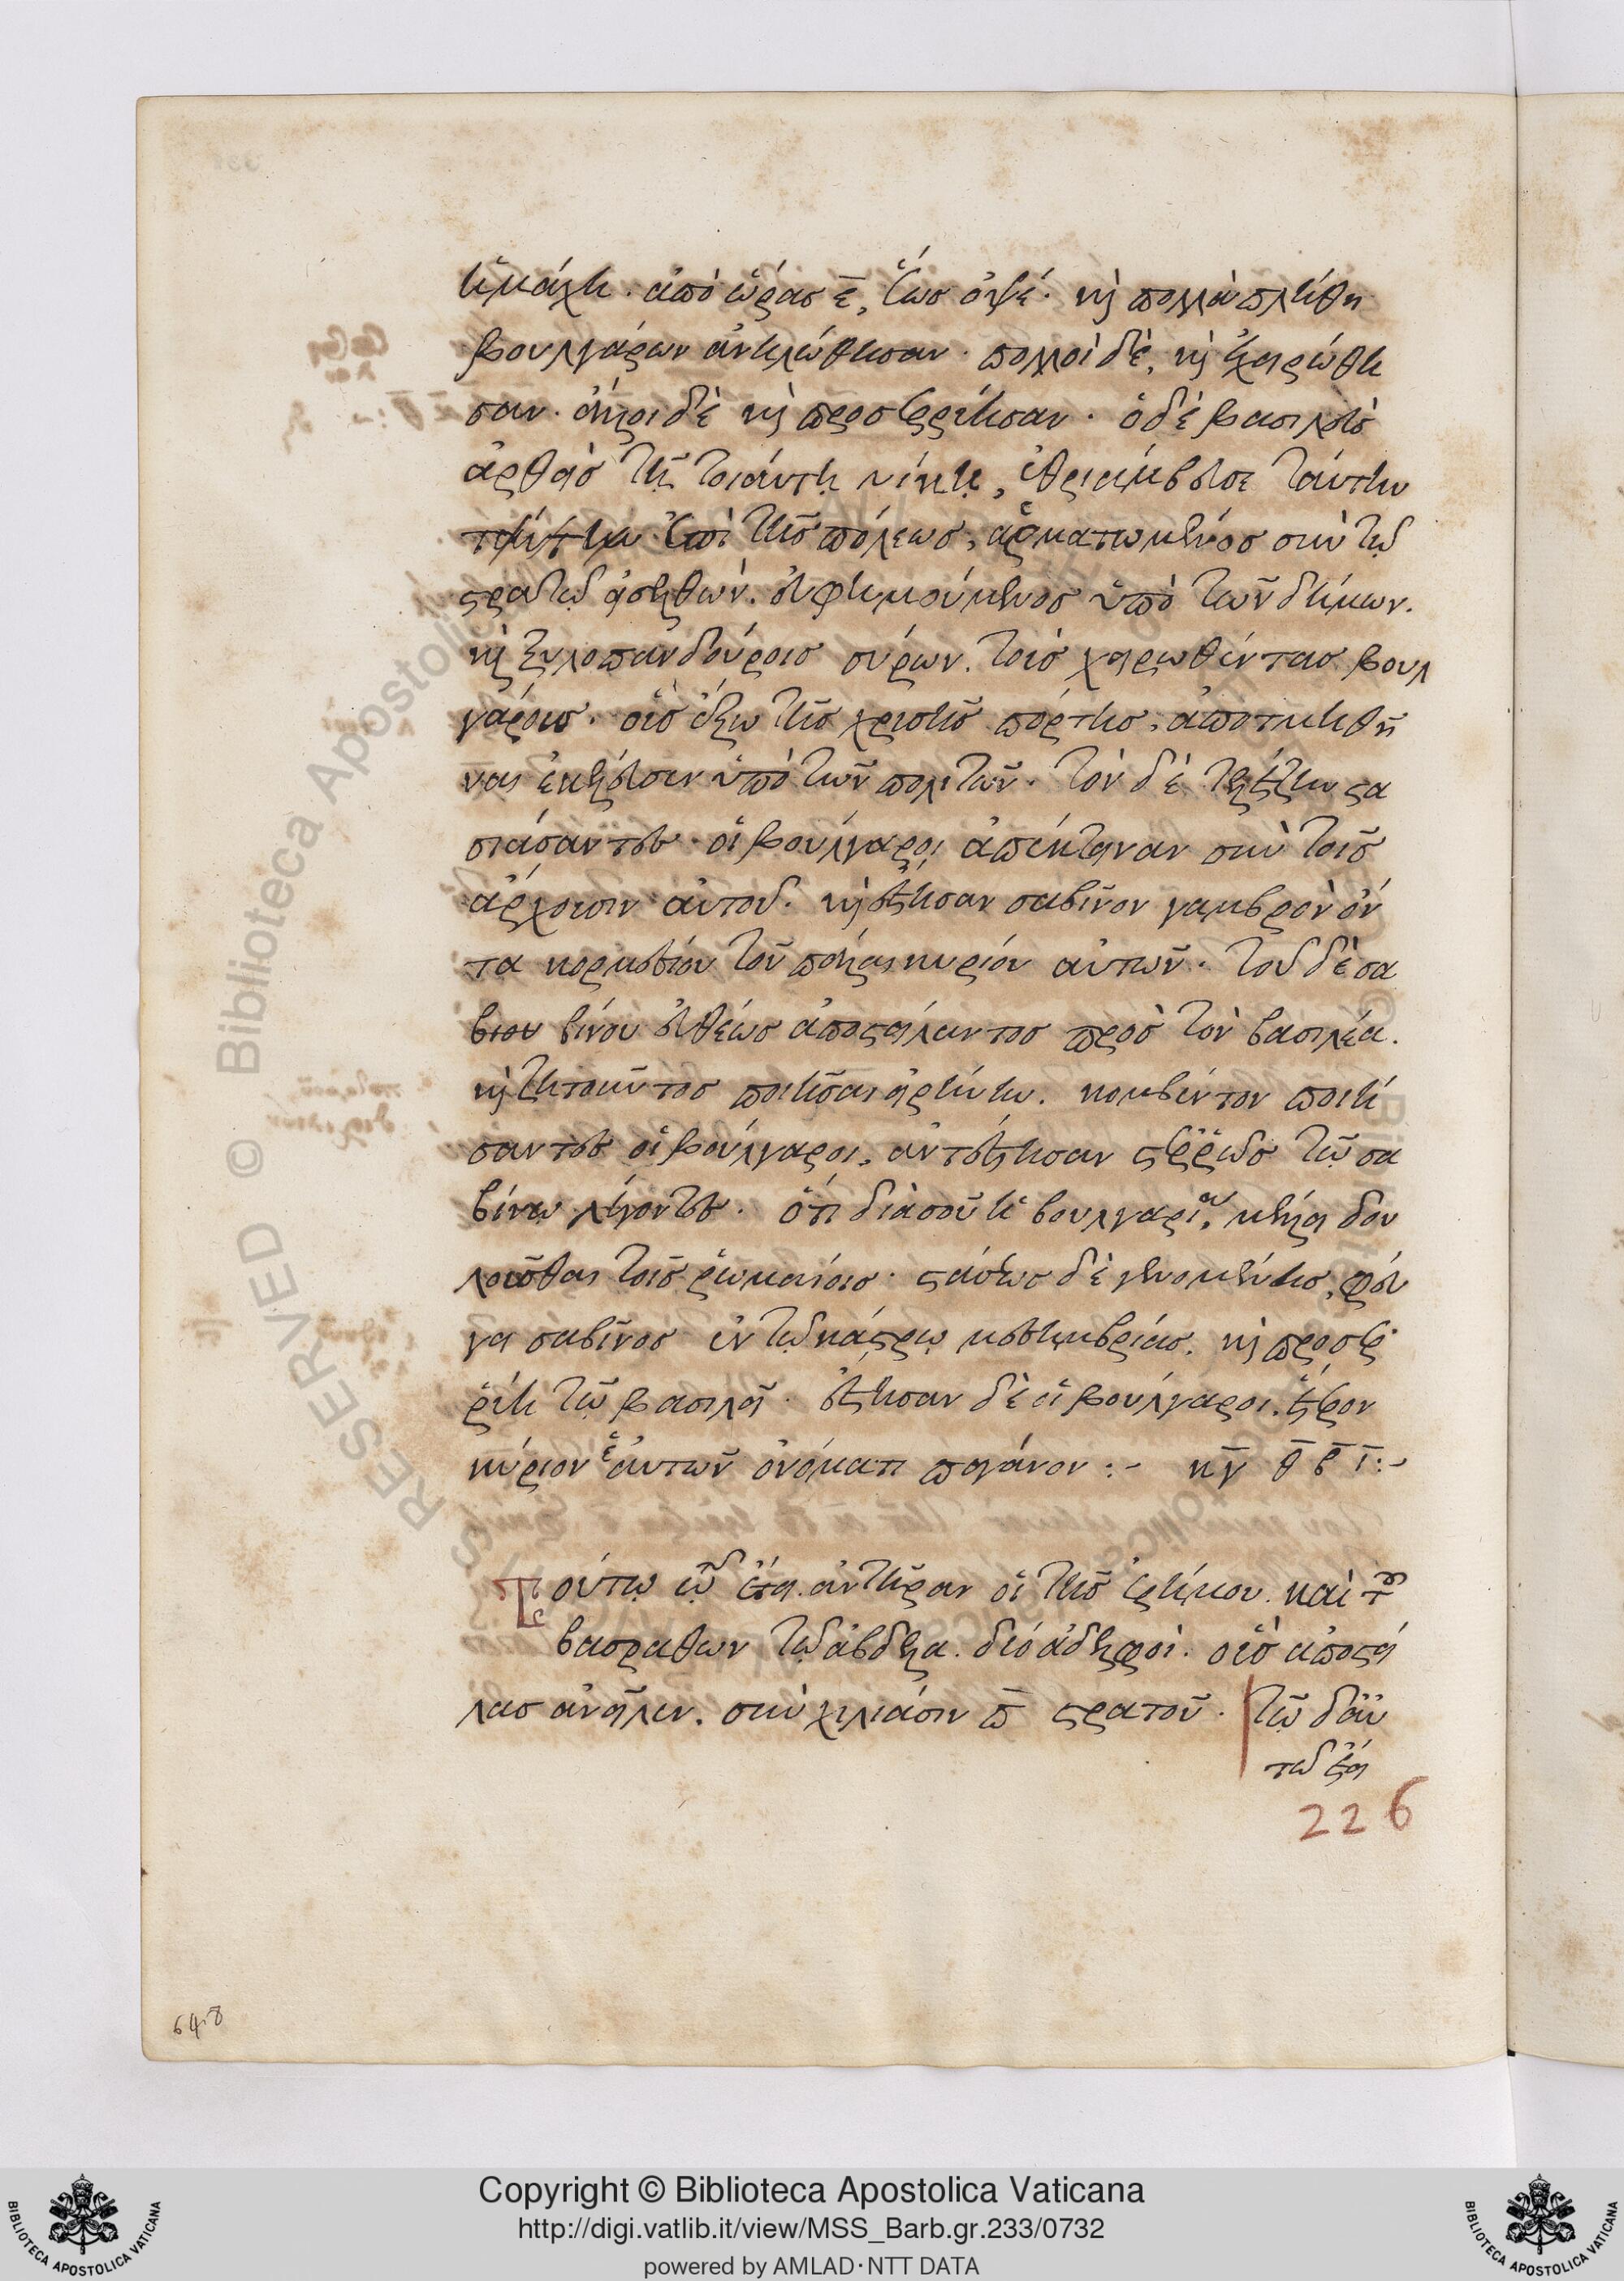 ἡ μάχη. ἀπὸ ὥρας ε̄, ἕως ὀψέ. καὶ πολλὰ πλήθη
βουλγάρων ἀνηλώθησαν. πολλοὶ δὲ, καὶ ἐχειρώθη
σαν. ἄλλοι δὲ καὶ προσερρύησαν. ὁ δὲ βασιλεὺς
ἀρθεὶς τῇ τοιαύτῃ νίκῃ, ἐθριάμβευσε ταύτην
ἐπὶ τῆς πόλεως, ἁρματωμένος σὺν τῷ
στρατῷ εἰσελθών. εὐφημούμενος ὑπὸ τῶν δήμων.
καὶ ξυλοπανδούροις σύρων. τοὺς χειρωθέντας βουλ
γάρους. οὓς ἔξω τῆς χρυσῆς πόρτης, ἀποτμηθῆ
ναι ἐκέλευσεν ὑπὸ τῶν πολιτῶν. τὸν δὲ τελέτζην στα
σιάσαντες οἱ βούλγαροι ἀπέκτειναν σὺν τοῖς
ἄρχουσιν αὐτοῦ. καὶ ἔστησαν σαβῖνον γαμβρὸν ὄν
τα κορμεσίου τοῦ πάλαι κυρίου αὐτῶν. τοῦ δὲ σα
βίνου εὐθέως ἀποστείλαντος πρὸς τὸν βασιλέα.
καὶ ζητοῦντος ποιῆσαι εἰρήνην. κομβέντον ποιή
σαντες οἱ βούλγαροι, ἀντέστησαν στερρῶς τῷ σα
βίνῳ λέγοντες. ὅτι διὰ σοῦ ἡ βουλγαρία, μέλλει δου
λοῦσθαι τοῖς ῥωμαίοις. στάσεως δὲ γενομένης, φεύ
γει σαβῖνος ἐν τῷ κάστρῳ μεσημβρίας. καὶ προσερ
ρύη τῷ βασιλεῖ. ἔστησαν δὲ οἱ βούλγαροι. ἕτερον
κύριον ἑαυτῶν ὀνόματι παγάνον :- κγ̄ θ̄ β̄ ῑ:-
Τούτῳ τῷ ἔτει ἀντῆραν οἱ τῆς ἐρήμου. καὶ τῆς
βασραθων τῷ ἀβδελα. δύο ἀδελφοὶ. οὓς ἀποστεί
λας ἀνεῖλεν. σὺν χιλιάσιν π̄ στρατοῦ. τῷ δ' αὐ
τῷ ἔτει
226
648
Copyright © Biblioteca Apostolica Vaticana
http://digi.vatlib.it/view/MSS_Barb.gr.233/0732
powered by AMLAD·NTT DATA